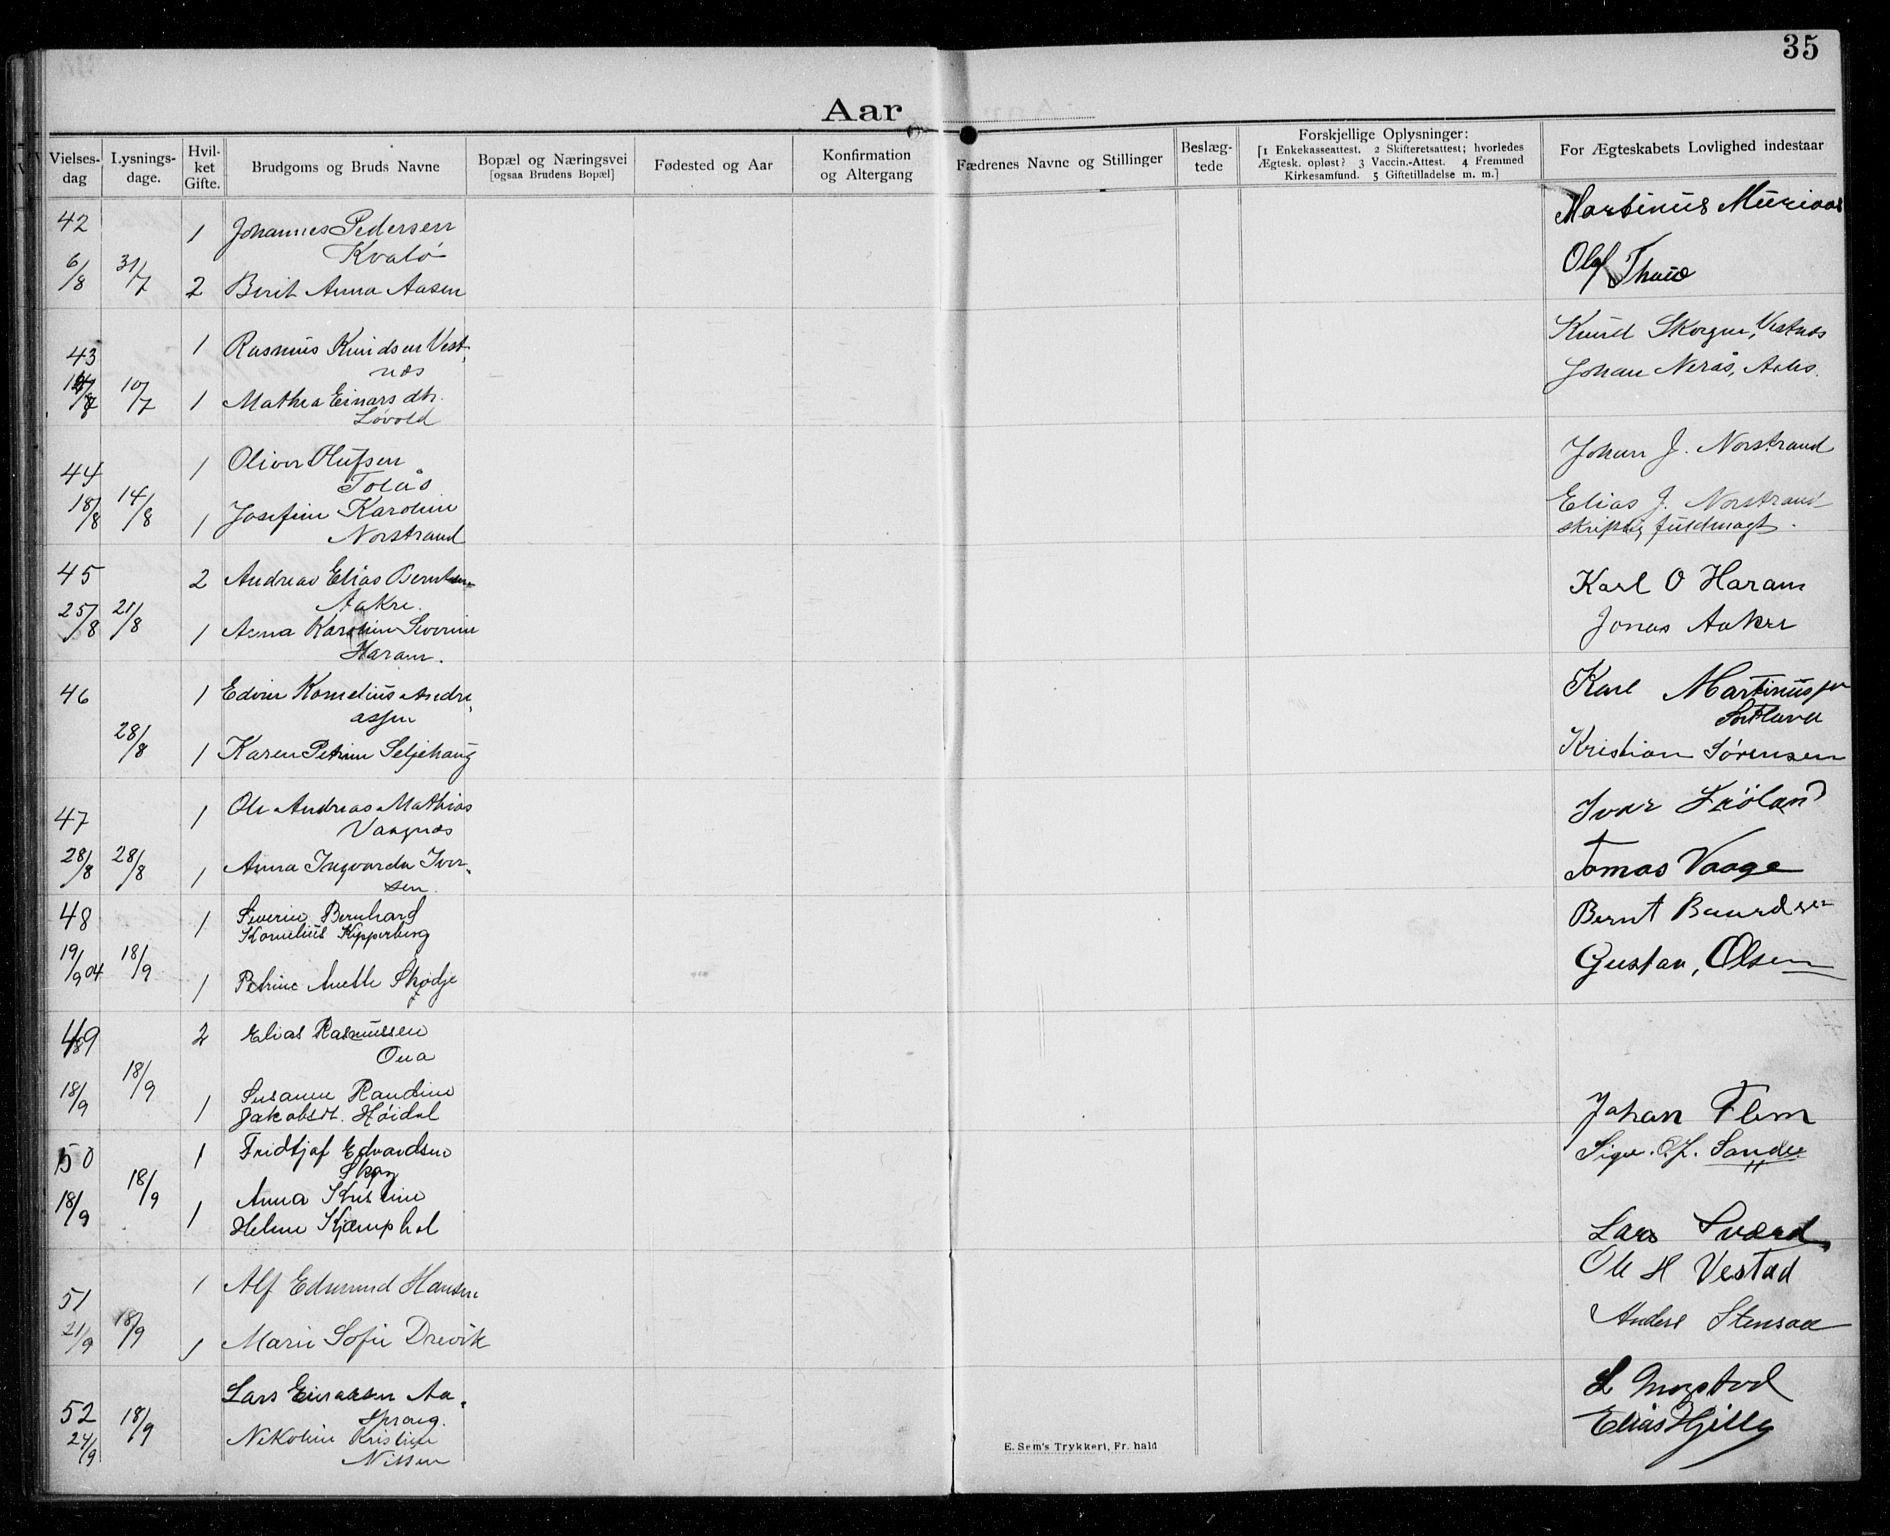 35
Aar
Vielses-
dag
Lysnings-
dage.
Hvil-
ket
Gifte.
Brudgoms og Bruds Navne
Bopæl og Næringsvei
[ogsaa Brudens Bopæl]
Fødested og Aar
Konfirmation
og Altergang
Fædrenes Navne og Stillinger
Beslæg-
tede
Forskjellige Oplysninger:
[1 Enkekasseattest. 2 Skifteretsattest; hvorledes
Ægtesk. opløst? 3 Vaccin.-Attest. 4 Fremmed
Kirkesamfund. 5 Giftetilladelse m. m.]
For Ægteskabets Lovlighed indestaar
42
1 Johannes Pedersen
Kvalø
6/8 31/7 2 Berit Anna Aasen
Martinus
Olaf
43 1 Rasmus Knudsen Vest-
næs
10/7 1 Mathea Einarsdtr.
Løvold
Knud Skorgen, Vestnæs
Johan Nerås,
44 1 Oliver Olufsen
Tolås
18/8 14/8 1 Josefine Karoline
Norstrand
Johan J. Norstrand
Elias J. Norstrand
skriftlig fuldmagt.
45 2 Andreas Elias Berntsen
Aakre.
25/8 21/8 1 Anna Karoline Severine
Haram.
Karl O Haram
Jonas Aakre
46 1 Edvin Kornelius Andre-
assen
28/8 1 Karen Petrine Seljehaug
Karl Martinussen
Kristian Sørensen
47 1 Ole Andreas Mathias
Vaagnæs
28/8 28/8 1 Anna Ingvarda Iver-
sen.
Ivar
Tomas Vaage
48 1 Severin Bernhard
Kornelius Kipperberg
19/9 04 18/9 1 Petrine Anette Skodje
Bernt Baardsen
Gustav, Olsen
49 2 Elias Rasmussen
Ona
18/9 18/9 1 Susanne Randine
Jakobsdt. Høidal
Johan Flem
50 1 Fridtjof Edvardsen
18/9 18/9 Anna Kristine
1 Helene Kjemphol
Lars Sværd
Ole H Vestad
51 1 Alf Edmund Hansen
21/9 18/9 1 Marie Sofie Drevik
52 18/9 Lars Einarsen Aa-
sprang.
24/9 Nikoline Kristine
Nilssen
Elias Hjelle
E. Sem's Trykkeri, Fr. hald